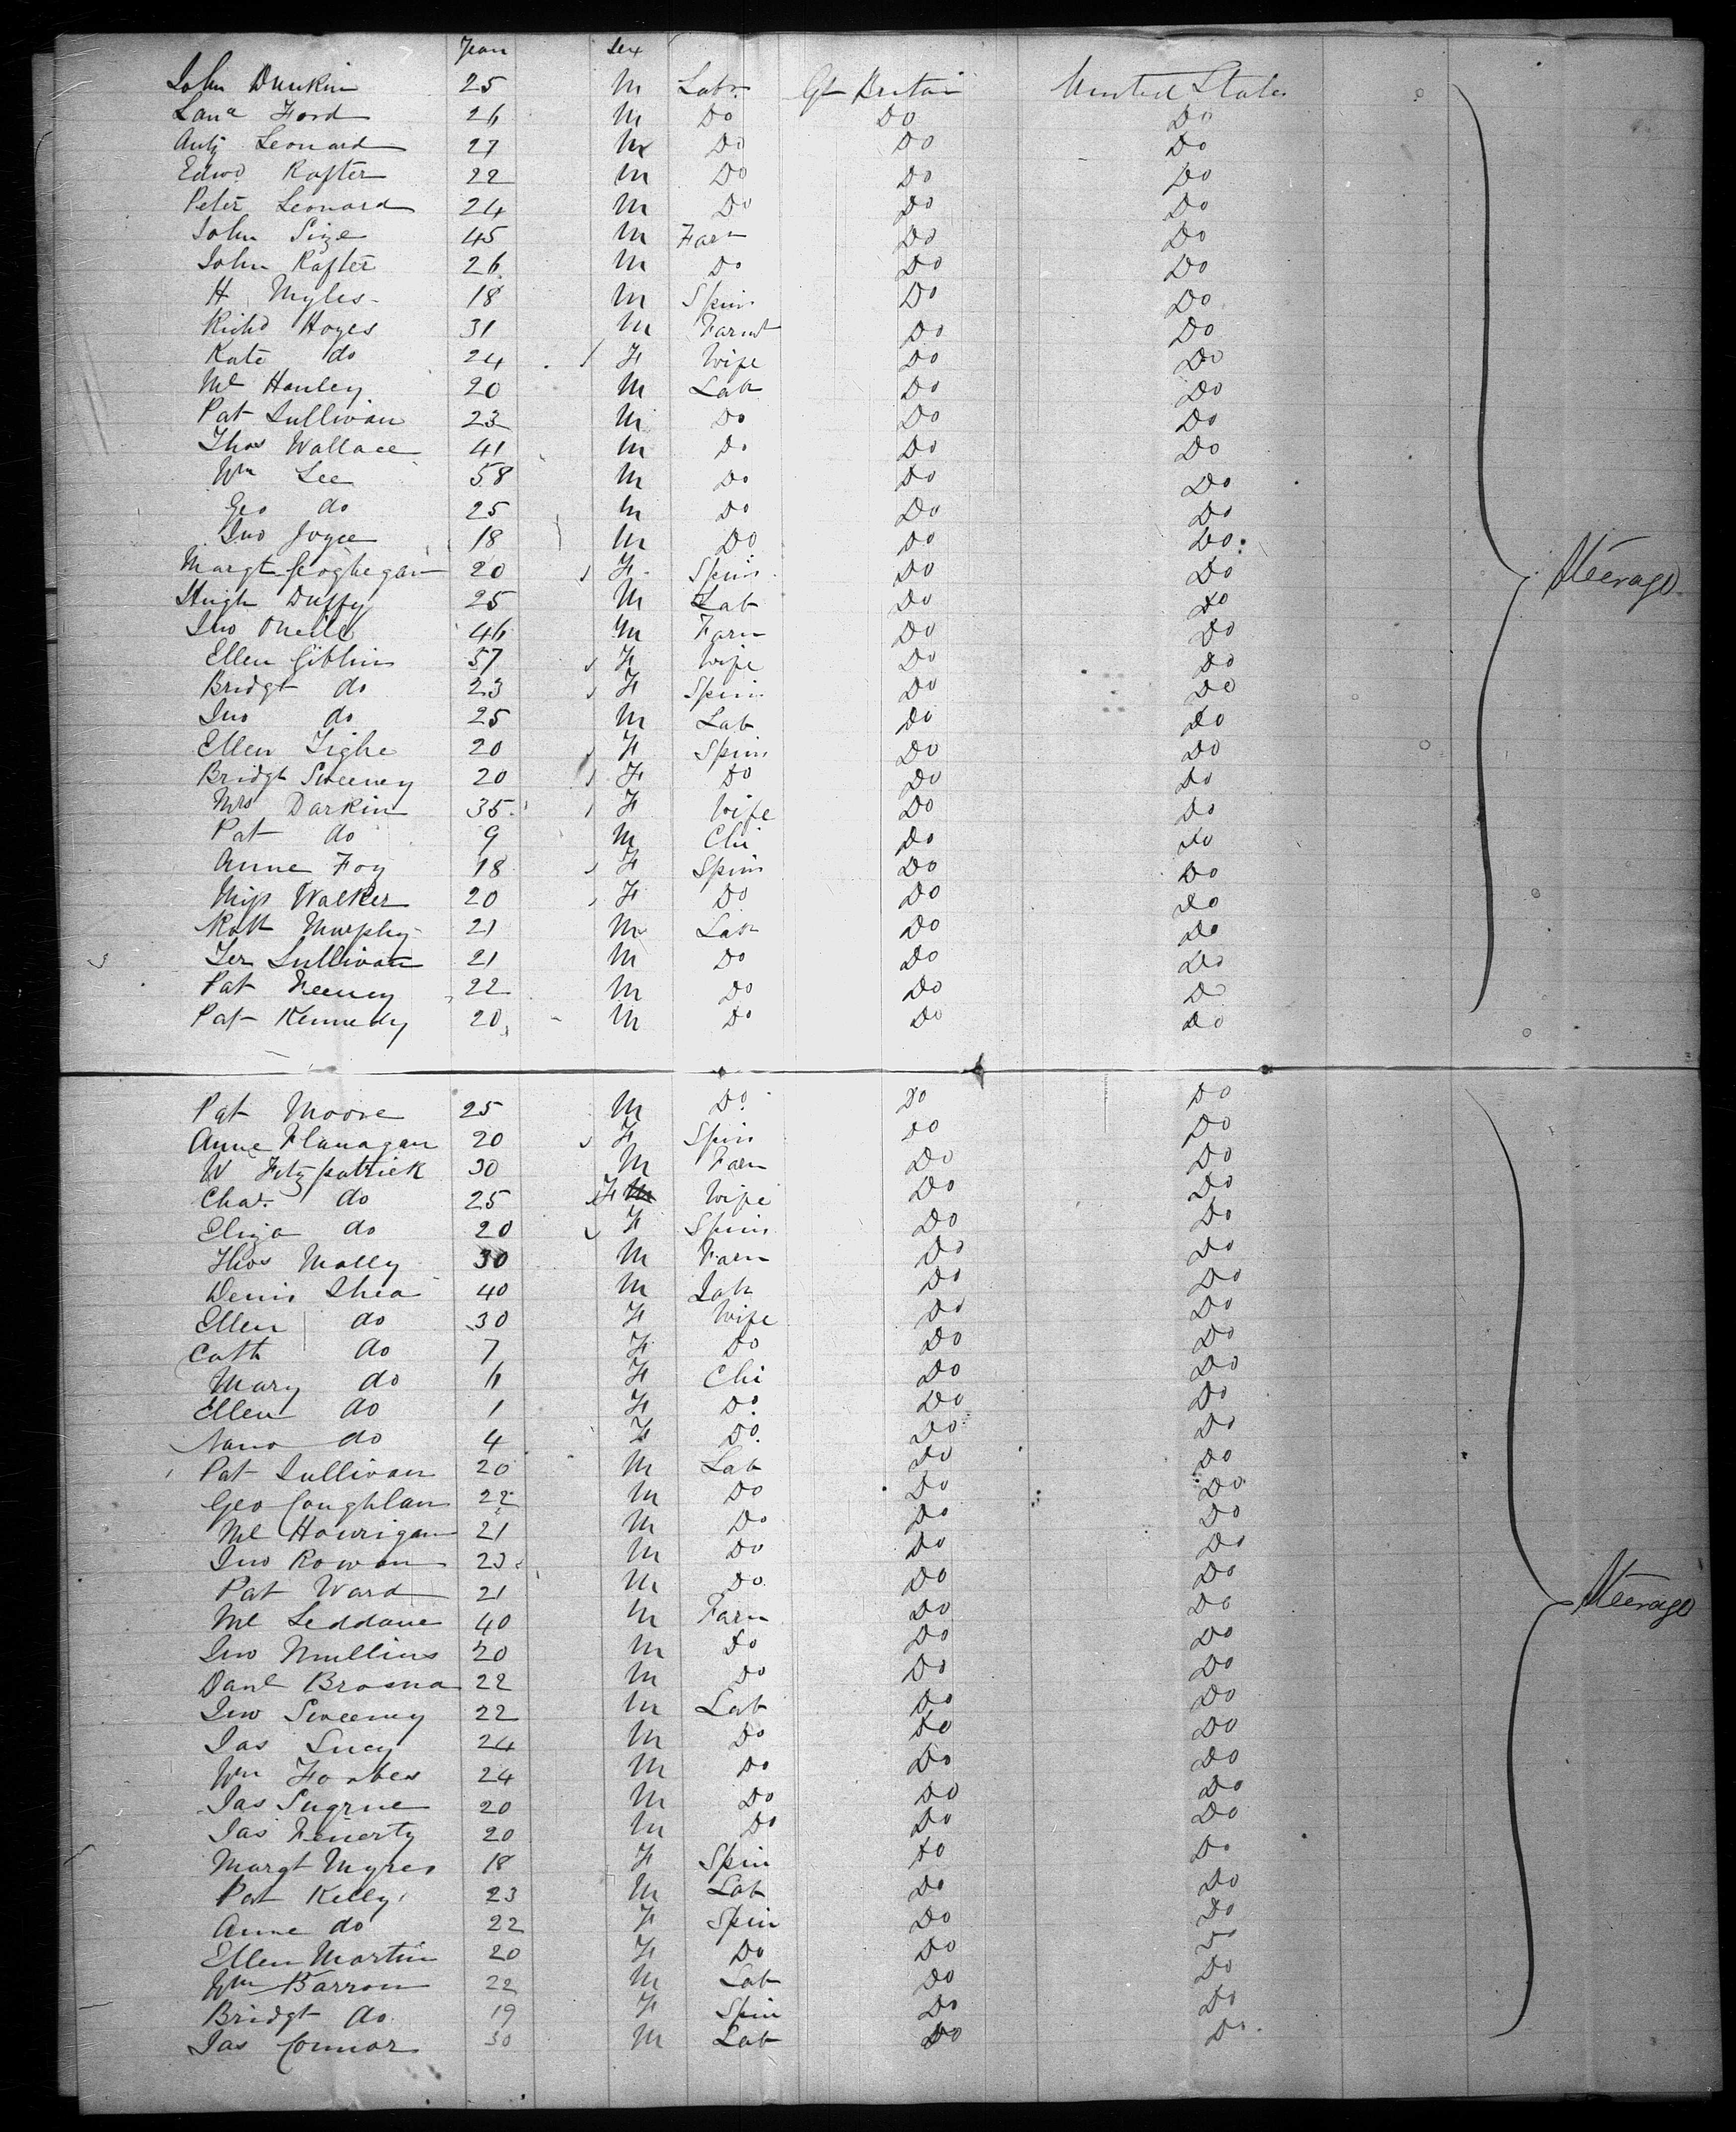 Years Sex
John Durkin 25 M Labr Gt Britain United States
Lanc Ford 26 M Do Do Do
Anty Leonard 27 M Do Do Do
Edwd Rafter 22 M Do Do Do
Peter Leonard 24 M Do Do Do
John Size 45 M Farm Do Do
John Rafter 26 M Do Do Do
H Myles 18 M Spin Do Do
Richd Hoyes 31 M Farmr Do Do
Kate do 24 F Wife Do Do
Ml Hanley 20 M Lab Do Do
Pat Sullivan 23 M Do Do Do
Thos Wallace 41 M Do Do Do
Wm Lee 58 M Do Do Do
Geo do 25 M Do Do Do
Jno Joyce 18 M Do Do Do
Margt Geoghegan 20 F Spin Do Do Steerage
Hugh Duffy 25 M Lab Do Do
Jno Oneill 46 M Farm Do Do
Ellen Giblin 57 F Wife Do Do
Bridgt do 23 F Spin Do Do
Jno do 25 M Lab Do Do
Ellen Tighe 20 F Spin Do Do
Bridgt Sweeney 20 F Do Do Do
Mrs Darkin 35 F Wife Do Do
Pat do 9 M Chi Do Do
Anne Foy 18 F Spin Do Do
Miss Walker 20 F Do Do Do
Robt Murphy 21 M Lab Do Do
Jer Sullivan 21 M Do Do Do
Pat Feeney 22 M Do Do Do
Pat Kennedy 20 M Do Do Do
Pat Moore 25 M Do Do Do
Anne Flanagan 20 F Spin Do Do
W Fitzpatrick 30 M Farm Do Do
Char. do 25 F Wife Do Do
Eliza do 20 F Spin Do Do
Thos Molly 30 M Farm Do Do
Denis Shea 40 M Lab Do Do
Ellen do 30 F Wife Do Do
Cath do 7 F Do Do Do
Mary do 6 F Chi Do Do
Ellen do 1 F Do Do Do
Nano do 4 F Do Do Do
Pat Sullivan 20 M Lab Do Do
Geo Coughlan 22 M Do Do Do
Ml Hourigan 21 M Do Do Do
Jno Rowan 23 M Do Do Do
Pat Ward 21 M Do Do Do
Ml Leddane 40 M Farm Do Do Steerage
Jno Mullins 20 M Do Do Do
Danl Brosna 22 M Do Do Do
Jno Sweeney 22 M Lab Do Do
Jas Lucy 24 M Do Do Do
Wm Forbes 24 M Do Do Do
Jas Sugrue 20 M Do Do Do
Jas Finerty 20 M Do Do Do
Margt Myres 18 F Spin Do Do
Pat Kelly 23 M Lab Do Do
Anne do 22 F Spin Do Do
Ellen Martin 20 F Do Do Do
Wm Barron 22 M Lab Do Do
Bridgt do 19 F Spin Do Do
Jas Connor 30 M Lab Do Do